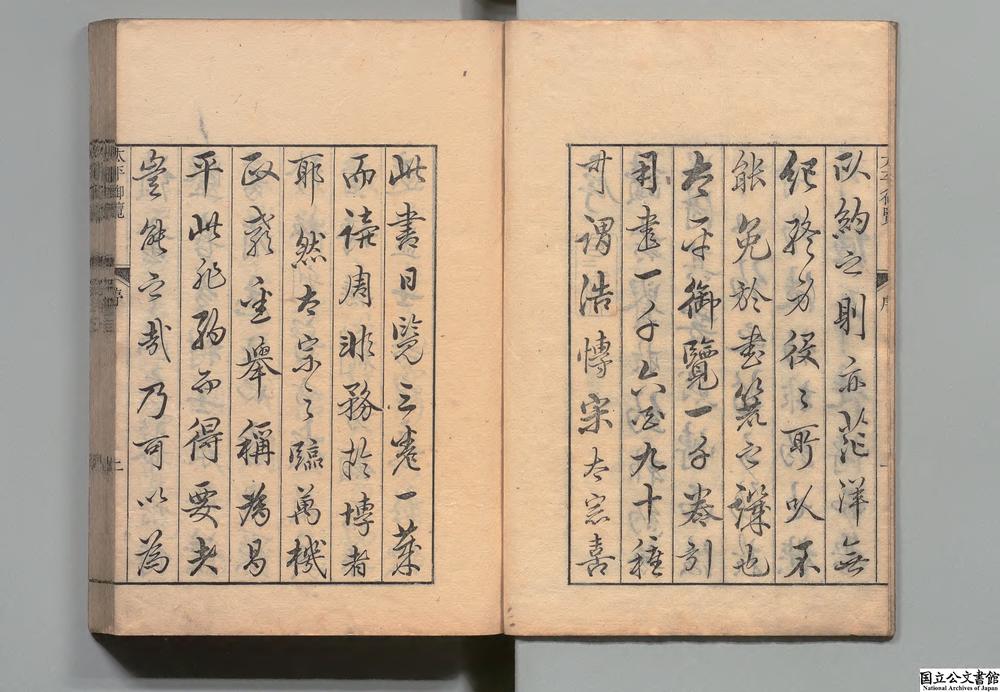 以約之則亦茫洋無
紀終身役々所以不
能免於書簏之譏也
太平御覽一千卷引
用書一千六百九十種
可謂浩博宋太宗喜
此書日覽三卷一
而讀周非務於博者
耶然太宗之臨萬機
政 並舉稱為昌
平此非約而得要夫
豈能之哉乃可以為
太平御覽
序
太平御覽
序
国立公文書館
National Archives of Japan